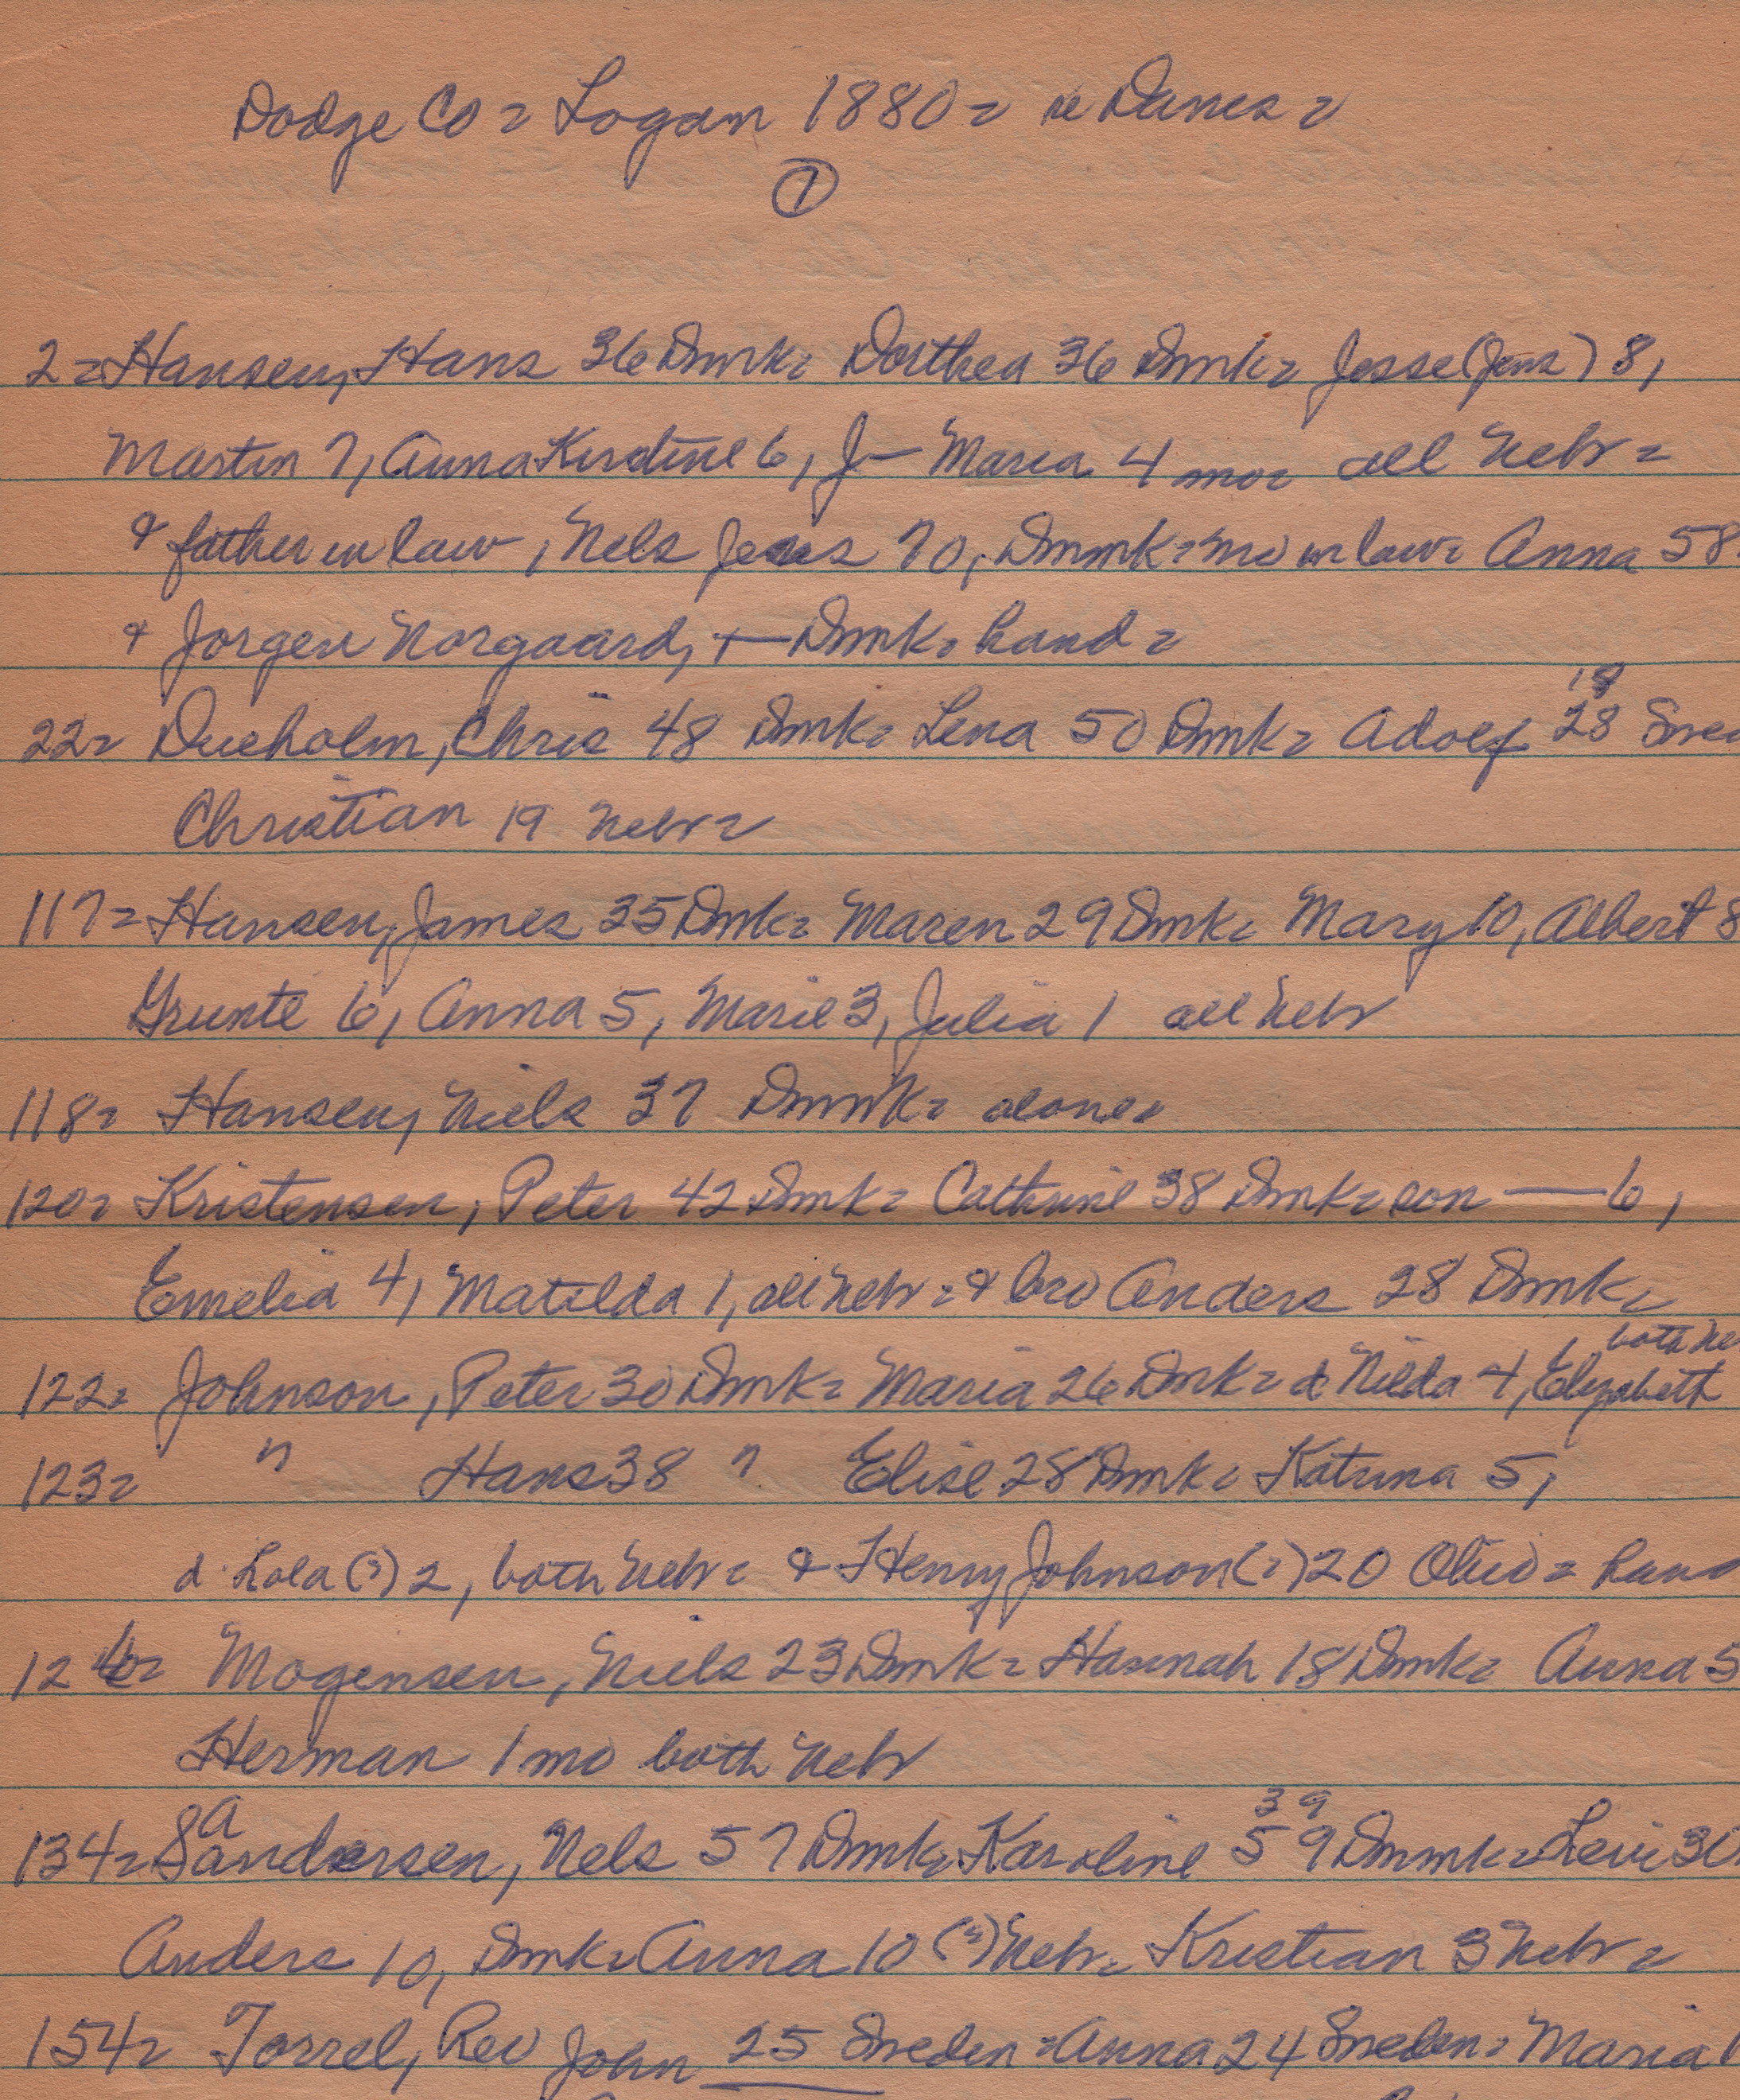 Dodge Co = Logan 1880 = re Danes =
1
2 = Hansen, Hans 36 Dmk = Dorthea 36 Dmk = Jesse (Jens) 8,
Martin 7, Anna Kirstine 6, J— Maria 4 mo = all Nebr =
& father in law, Nels Jens 70, Dmmk = mo in law = Anna 58
& Jorgen Norgaard, + — Dmk = hand =
22 = Dueholm, Chris 48 Dmk = Lena 50 Dmk = Adolf 28 18
Christian 19 Nebr =
117 = Hansen, James 35 Dmk = Maren 29 Dmk = Mary 10, Albert 8
Grunte 6, Anna 5, Marie 3, Julia 1 all Nebr
118 = Hansen, Niels 37 Dmmk = alone =
120 = Kristensen, Peter 42 Dmk = Cathrine 38 Dmk = son — 6,
Emelia 4, Matilda 1, all Nebr = & bro Anders 28 Dmk =
122 = Johnson, Peter 30 Dmk = Maria 26 Dmk = d Nilda 4, Elizabeth both Ne
123 = " Hans 38 " Elise 28 Dmk = Katrina 5,
d Lola (?) 2, both Nebr = & Henry Johnson (?) 20 Ohio = hand
126 = Mogensen, Niels 23 Dmk = Hannah 18 Dmk = Anna 5
Herman 1 mo both Nebr
134 = Sandersen, A Nels 57 Dmk = Karoline 59 39 Dmmk = Levi 30
Anders 10, Dmk = Anna 10 (?) Nebr = Kristian 3 Nebr =
154 = Torrel, Rev John 25 Sweden = Anna 24 Sweden = Maria 1